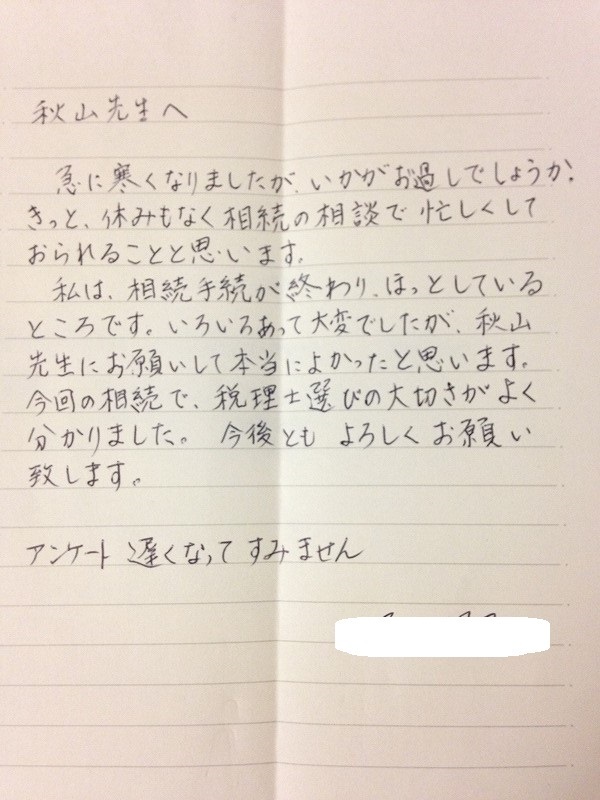 秋山先生へ
急に寒くなりましたが、いかがお過しでしょうか。
きっと、休みもなく相続の相談で忙しくして
おられることと思います。
私は、相続手続が終わり、ほっとしている
ところです。いろいろあって大変でしたが、秋山
先生にお願いして本当によかったと思います。
今回の相続で、税理士選びの大切さがよく
分かりました。 今後とも よろしくお願い
致します。
アンケート 遅くなって すみません